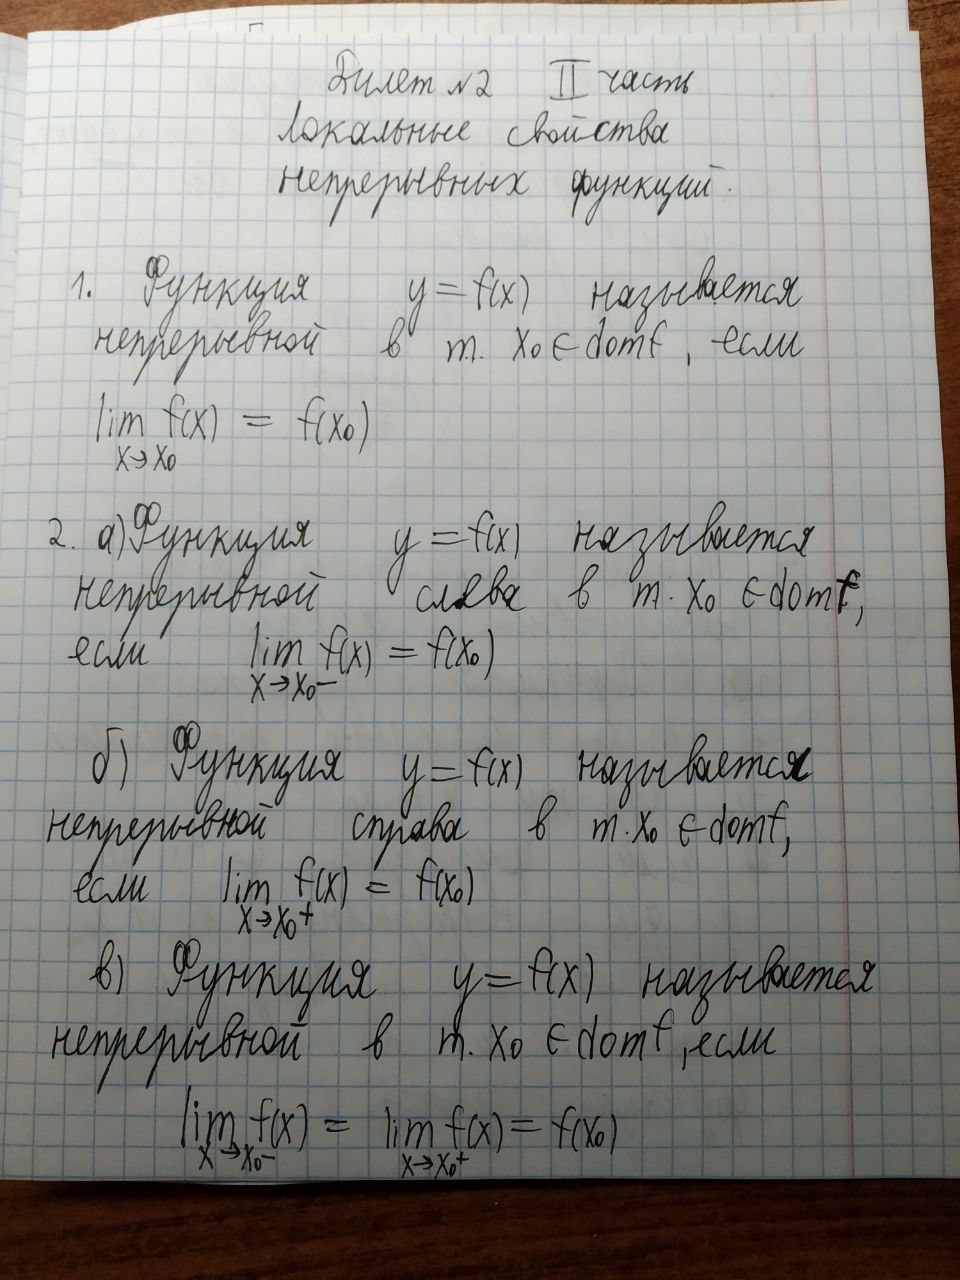 Билет №2 II часть
Локальные свойства
непрерывных функций.
1. Функция y = f(x) называется
непрерывной в т. x₀ ∈ domf, если
lim f(x) = f(x₀)
x→x₀
2. а) Функция y = f(x) называется
непрерывной слева в т. x₀ ∈ domf,
если lim f(x) = f(x₀)
x→x₀−
б) Функция y = f(x) называется
непрерывной справа в т. x₀ ∈ domf,
если lim f(x) = f(x₀)
x→x₀+
в) Функция y = f(x) называется
непрерывной в т. x₀ ∈ domf, если
lim f(x) = lim f(x) = f(x₀)
x→x₀− x→x₀+